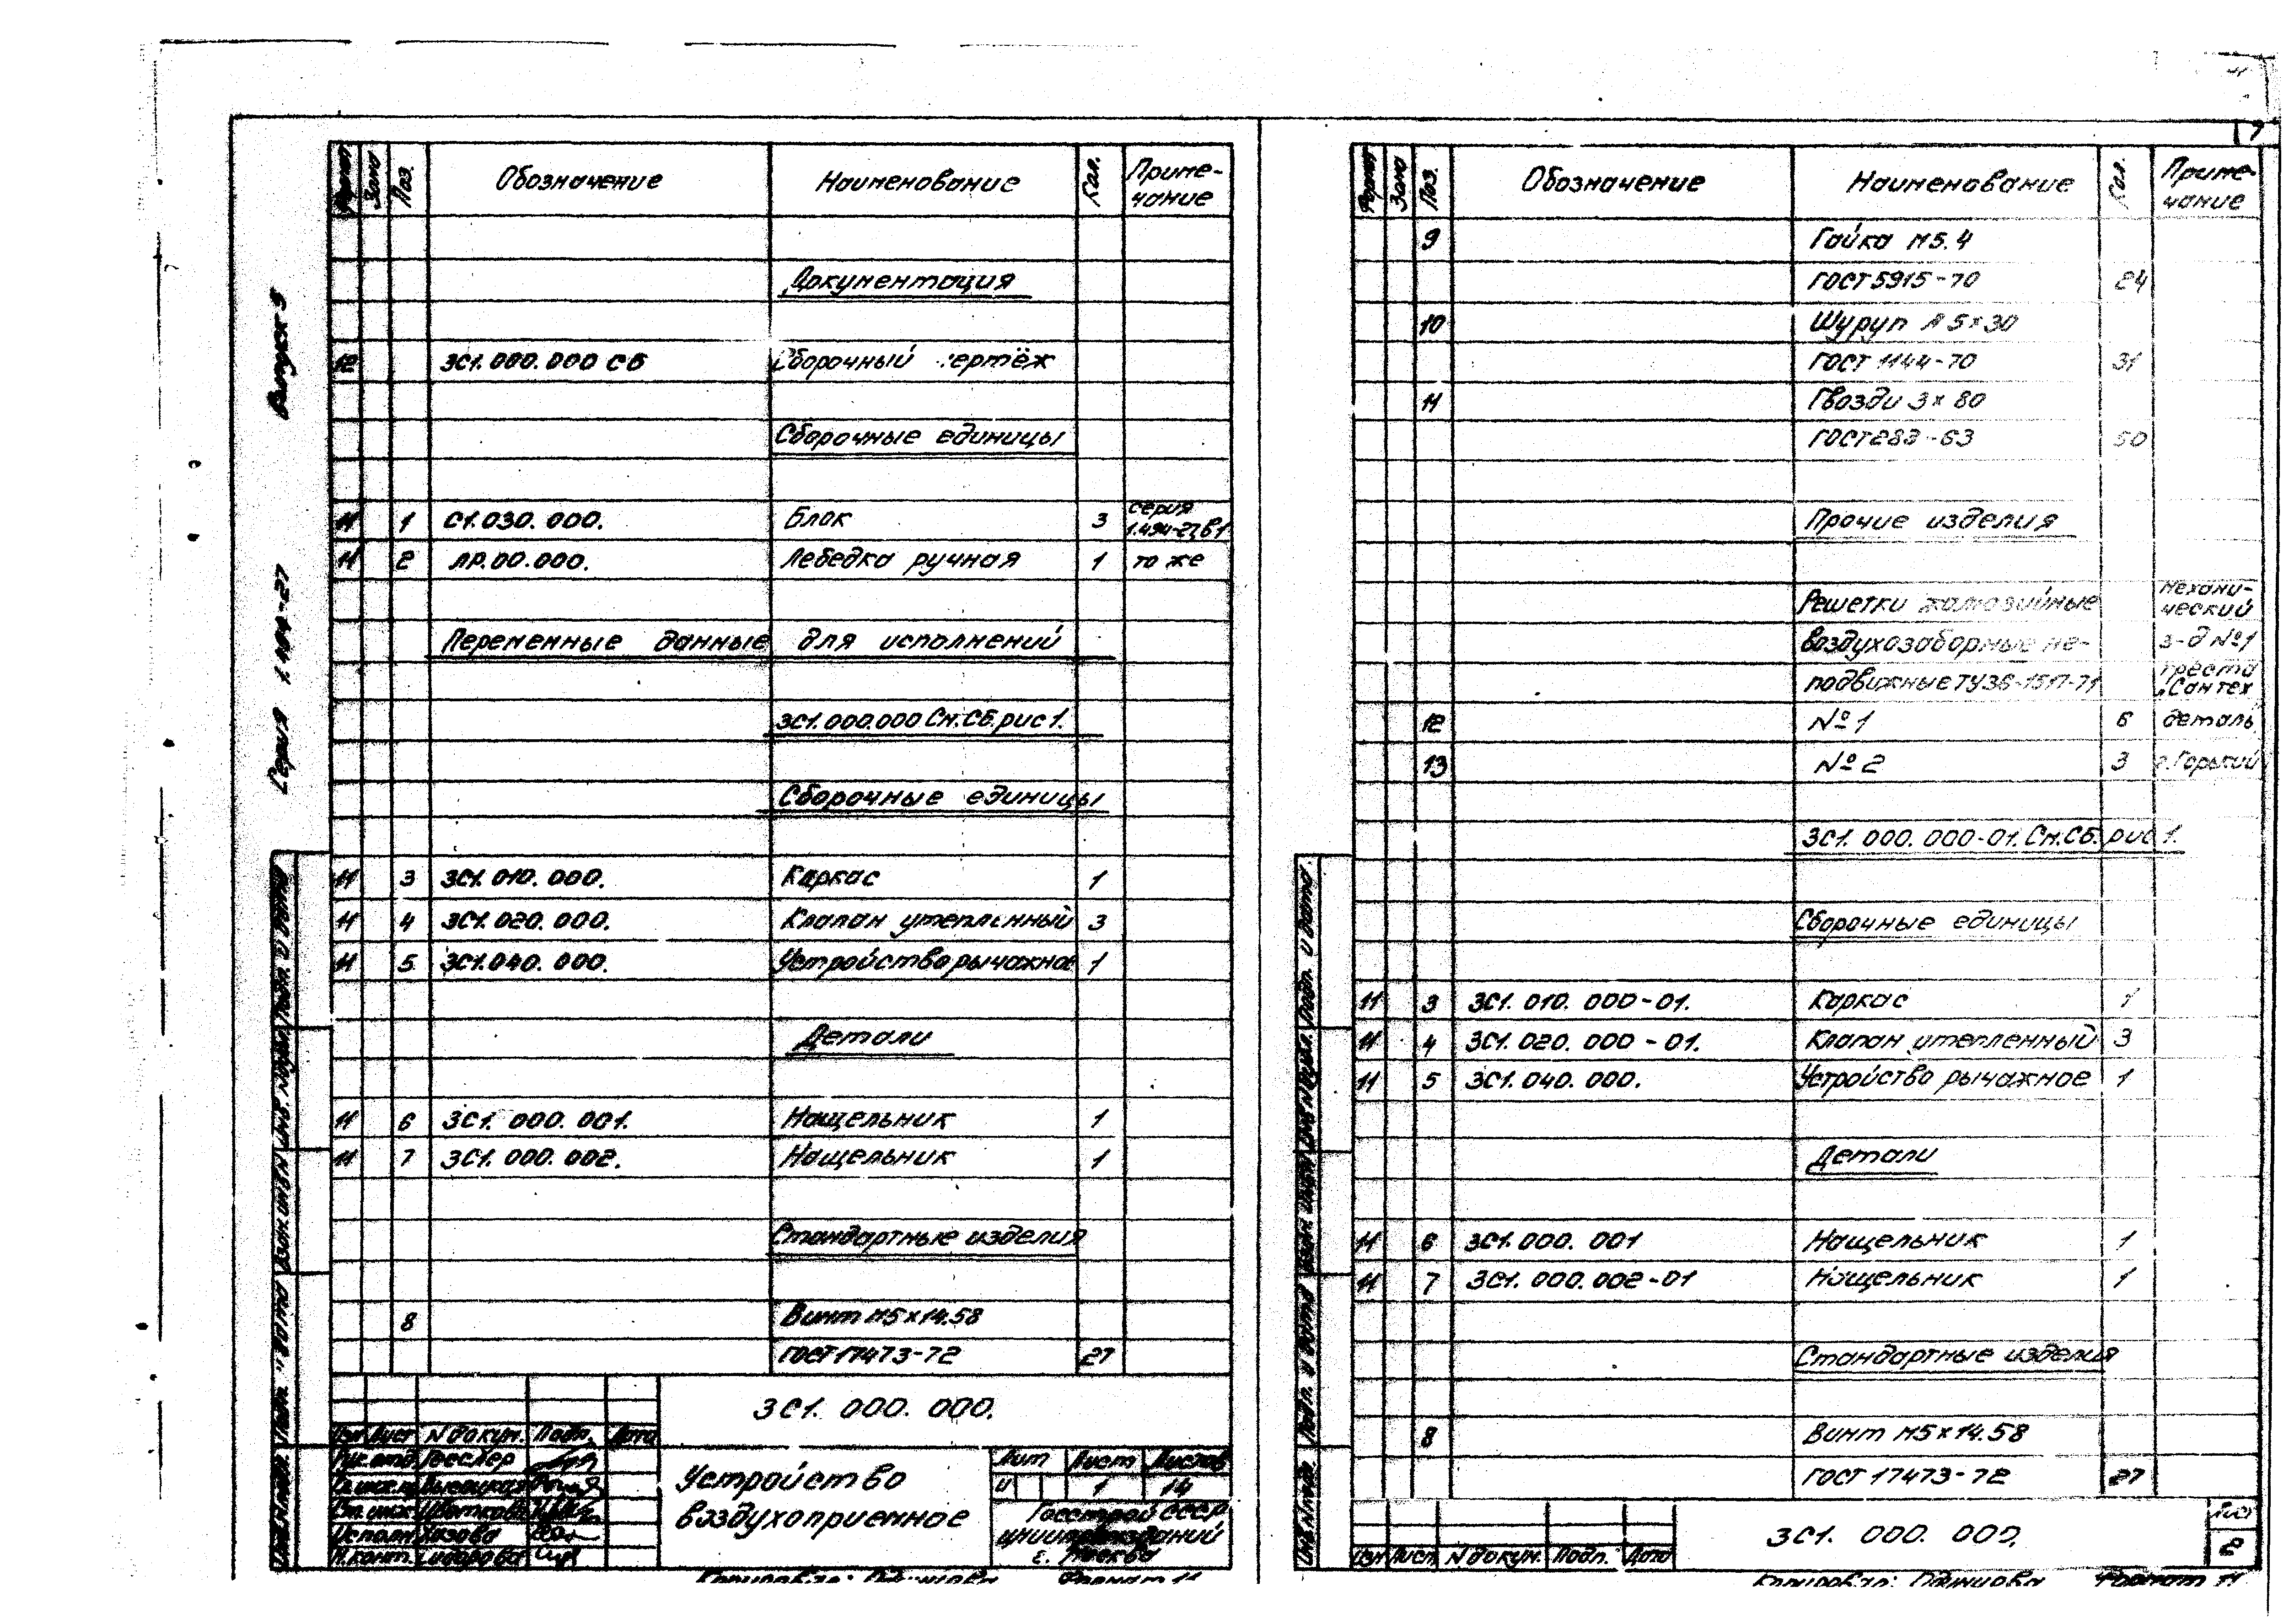 7
Выпуск 5
Серия 1.494-27
Формат Зона Поз. Обозначение Наименование Кол. Приме-
чание
Документация
12 3С1.000.000 СБ Сборочный чертёж
Сборочные единицы
11 1 С1.030.000. Блок 3 серия
1.494-27, в1
11 2 ЛР.00.000. Лебедка ручная 1 то же
Переменные данные для исполнений
3С1.000.000 См.СБ.рис1.
Сборочные единицы
11 3 3С1.010.000. Каркас 1
11 4 3С1.020.000. Клапан утепленный 3
11 5 3С1.040.000. Устройство рычажное 1
Детали
11 6 3С1.000.001. Нащельник 1
11 7 3С1.000.002. Нащельник 1
Стандартные изделия
8 Винт М5×14.58
ГОСТ 17473-72 27
3С1.000.000.
Изм Лист N докум. Подп. Дата
Рук.отд. Гесслер
Исполн. Хазова
Н.конт. Сидорова
Устройство
воздухоприемное
Лит Лист Листов
И 1 14
Госстрой СССР
ЦНИИпромзданий
г. Москва
Копировал: Одинцова Формат 11
Формат Зона Поз. Обозначение Наименование Кол. Приме-
чание
9 Гайка М5.4
ГОСТ 5915-70 24
10 Шуруп А 5×30
ГОСТ 1144-70 31
11 Гвозди 3×80
ГОСТ 283-63 50
Прочие изделия
Решетки жалюзийные механи-
ческий
воздухозаборные не- з-д №1
подвижные ТУ36-1517-71 треста
„Сантех
12 №1 6 деталь
13 №2 3 г.Горький
3С1.000.000-01.См.СБ.рис1.
Сборочные единицы
11 3 3С1.010.000-01. Каркас 1
11 4 3С1.020.000-01. Клапан утепленный 3
11 5 3С1.040.000. Устройство рычажное 1
Детали
11 6 3С1.000.001 Нащельник 1
11 7 3С1.000.002-01 Нащельник 1
Стандартные изделия
8 Винт М5×14.58
ГОСТ 17473-72 27
Изм Лист N докум. Подп. Дата
3С1.000.000.
Лист
2
Копировал: Одинцова Формат 11